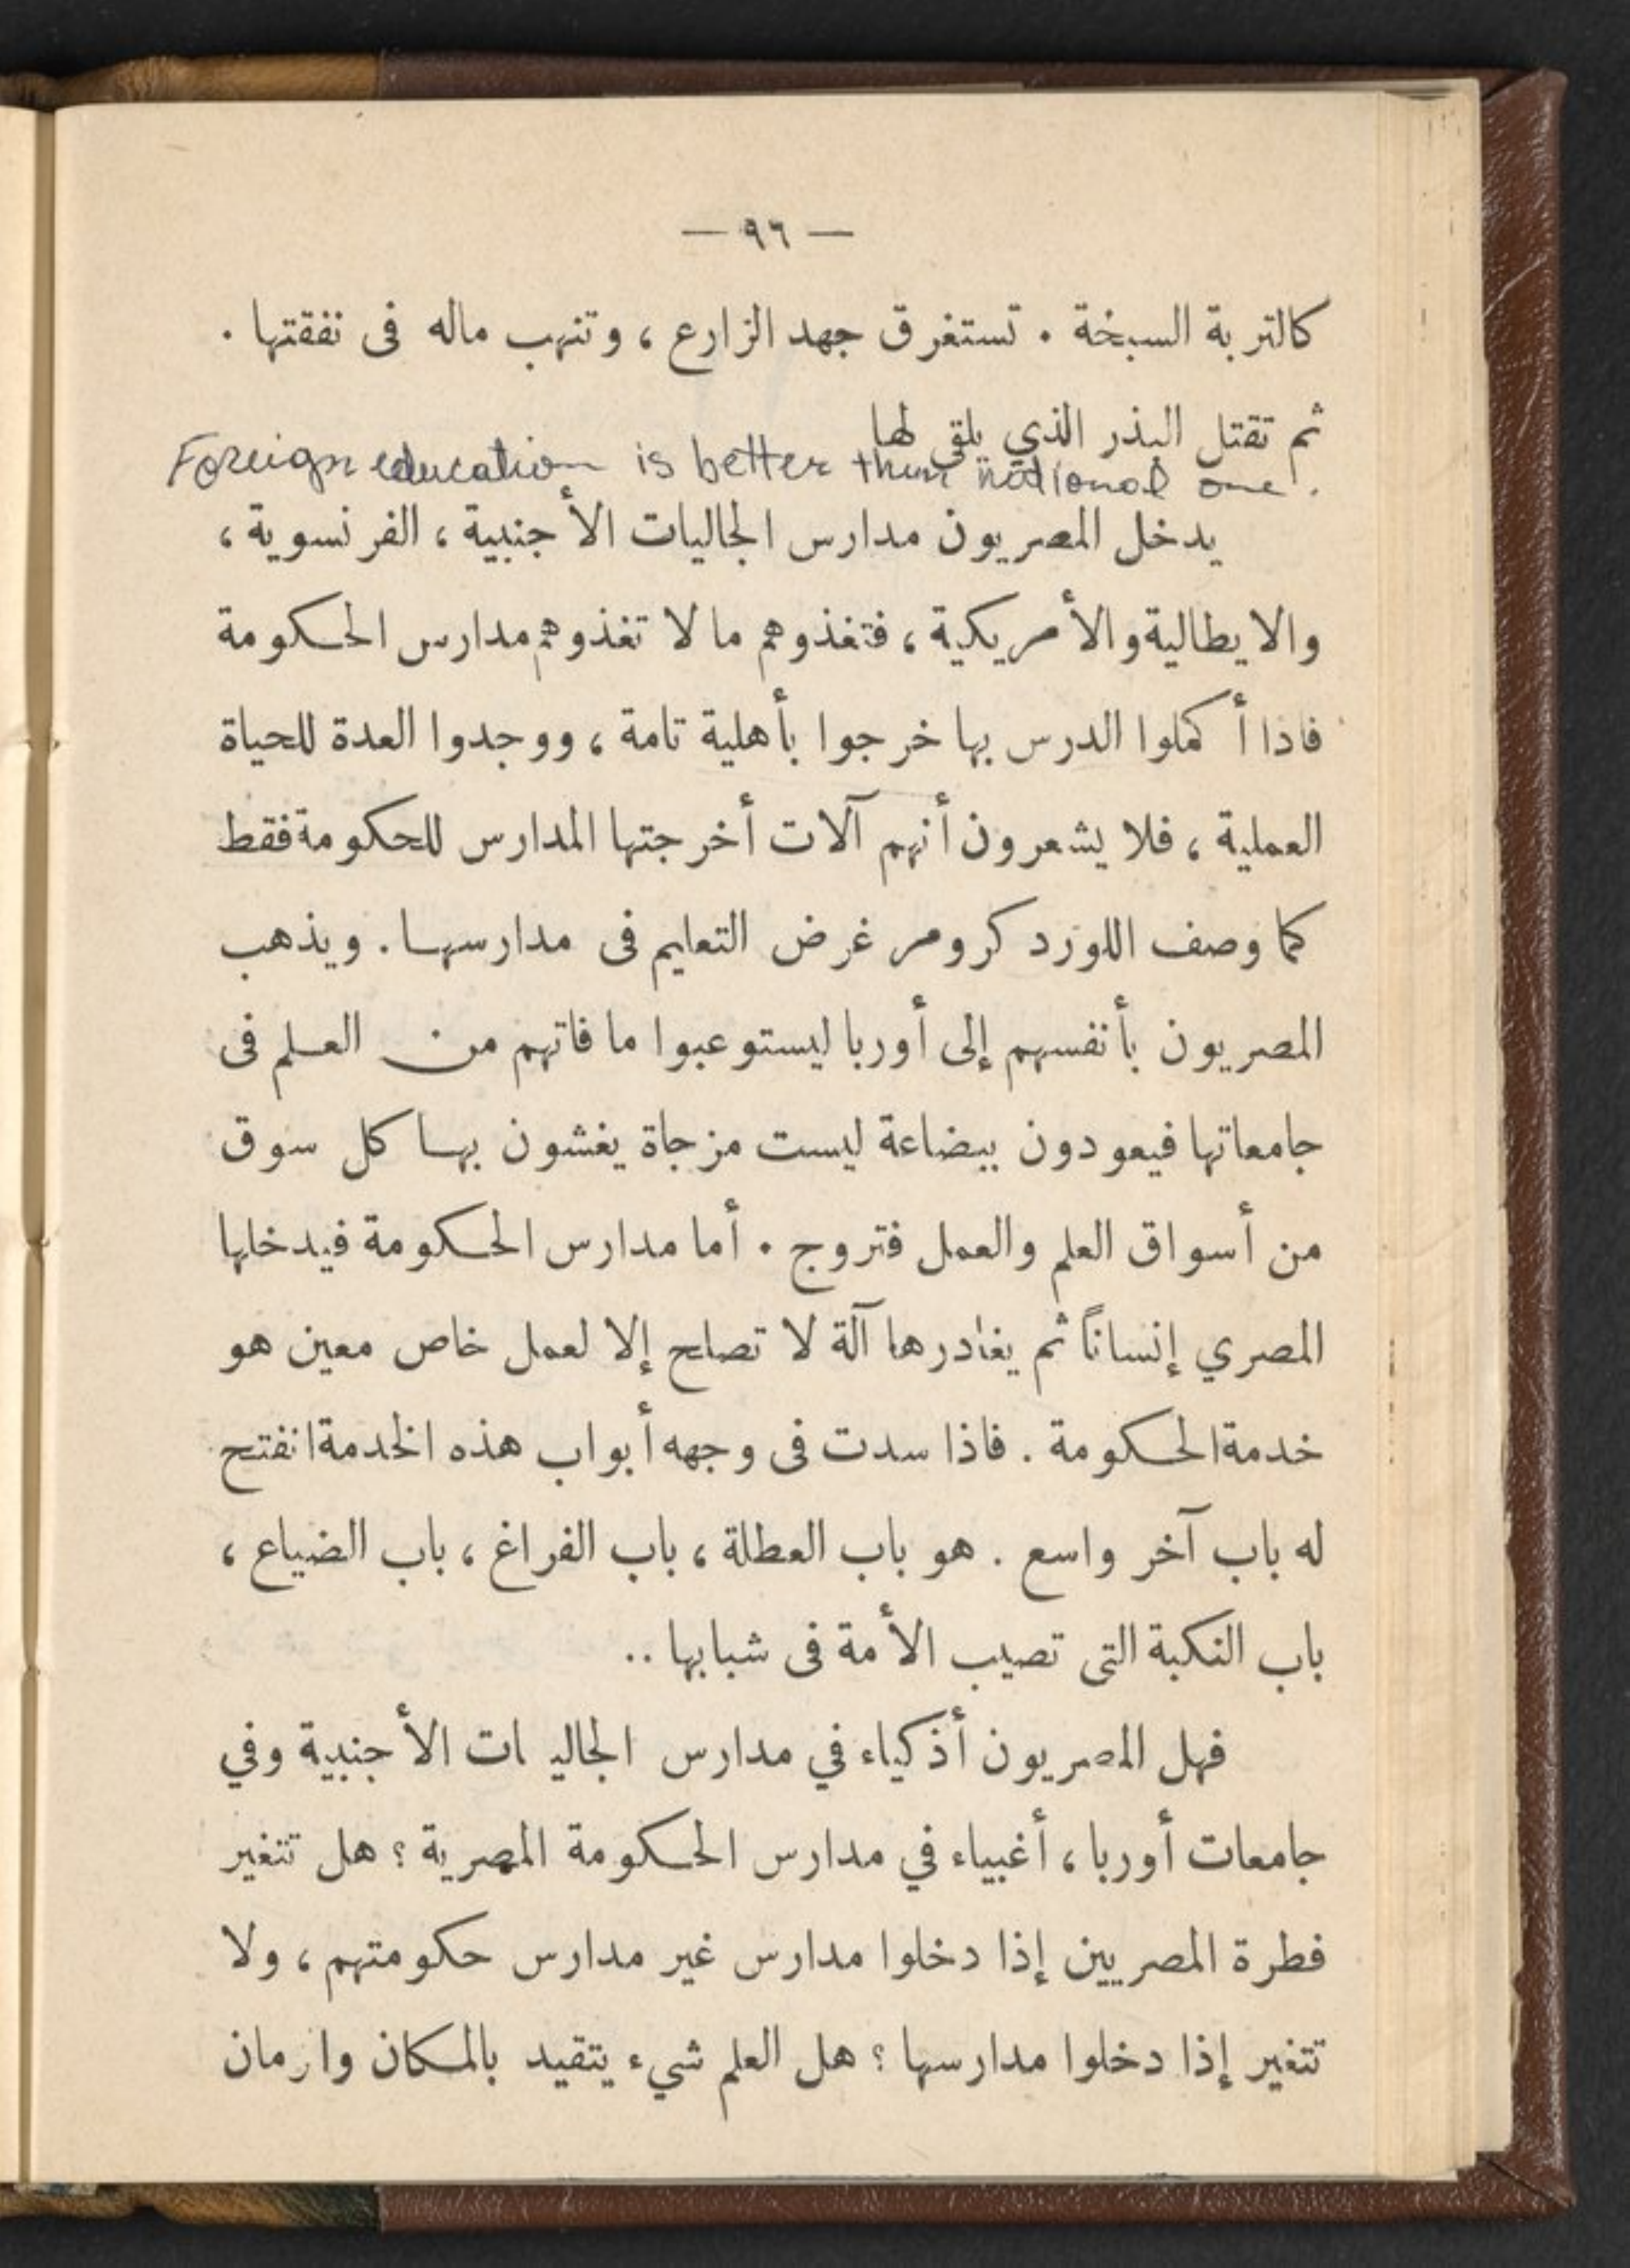 — ٩٦ —
كالتربة السبخة . تستغرق جهد الزارع ، وتنهب ماله فى نفقتها .
ثم تقتل البذر الذي يلقى لها
Foreign education is better than national one .
يدخل المصريون مدارس الجاليات الأجنبية ، الفرنسوية ،
والايطالية والأمريكية ، فتغذوهم ما لا تغذوهم مدارس الحكومة
فاذا أكملوا الدرس بها خرجوا بأهلية تامة ، ووجدوا العدة للحياة
العملية ، فلا يشعرون أنهم آلات أخرجتها المدارس للحكومة فقط
كما وصف اللورد كرومر غرض التعليم فى مدارسها . ويذهب
المصريون بأنفسهم إلى أوربا ليستوعبوا ما فاتهم من العلم فى
جامعاتها فيعودون ببضاعة ليست مزجاة يغشون بها كل سوق
من أسواق العلم والعمل فتروج . أما مدارس الحكومة فيدخلها
المصري إنساناً ثم يغادرها آلة لا تصلح إلا لعمل خاص معين هو
خدمة الحكومة . فاذا سدت فى وجهه أبواب هذه الخدمة انفتح
له باب آخر واسع . هو باب العطلة ، باب الفراغ ، باب الضياع ،
باب النكبة التى تصيب الأمة فى شبابها ..
فهل المصريون أذكياء في مدارس الجاليات الأجنبية وفي
جامعات أوربا ، أغبياء في مدارس الحكومة المصرية ؟ هل تتغير
فطرة المصريين إذا دخلوا مدارس غير مدارس حكومتهم ، ولا
تتغير إذا دخلوا مدارسها ؟ هل العلم شيء يتقيد بالمكان والزمان